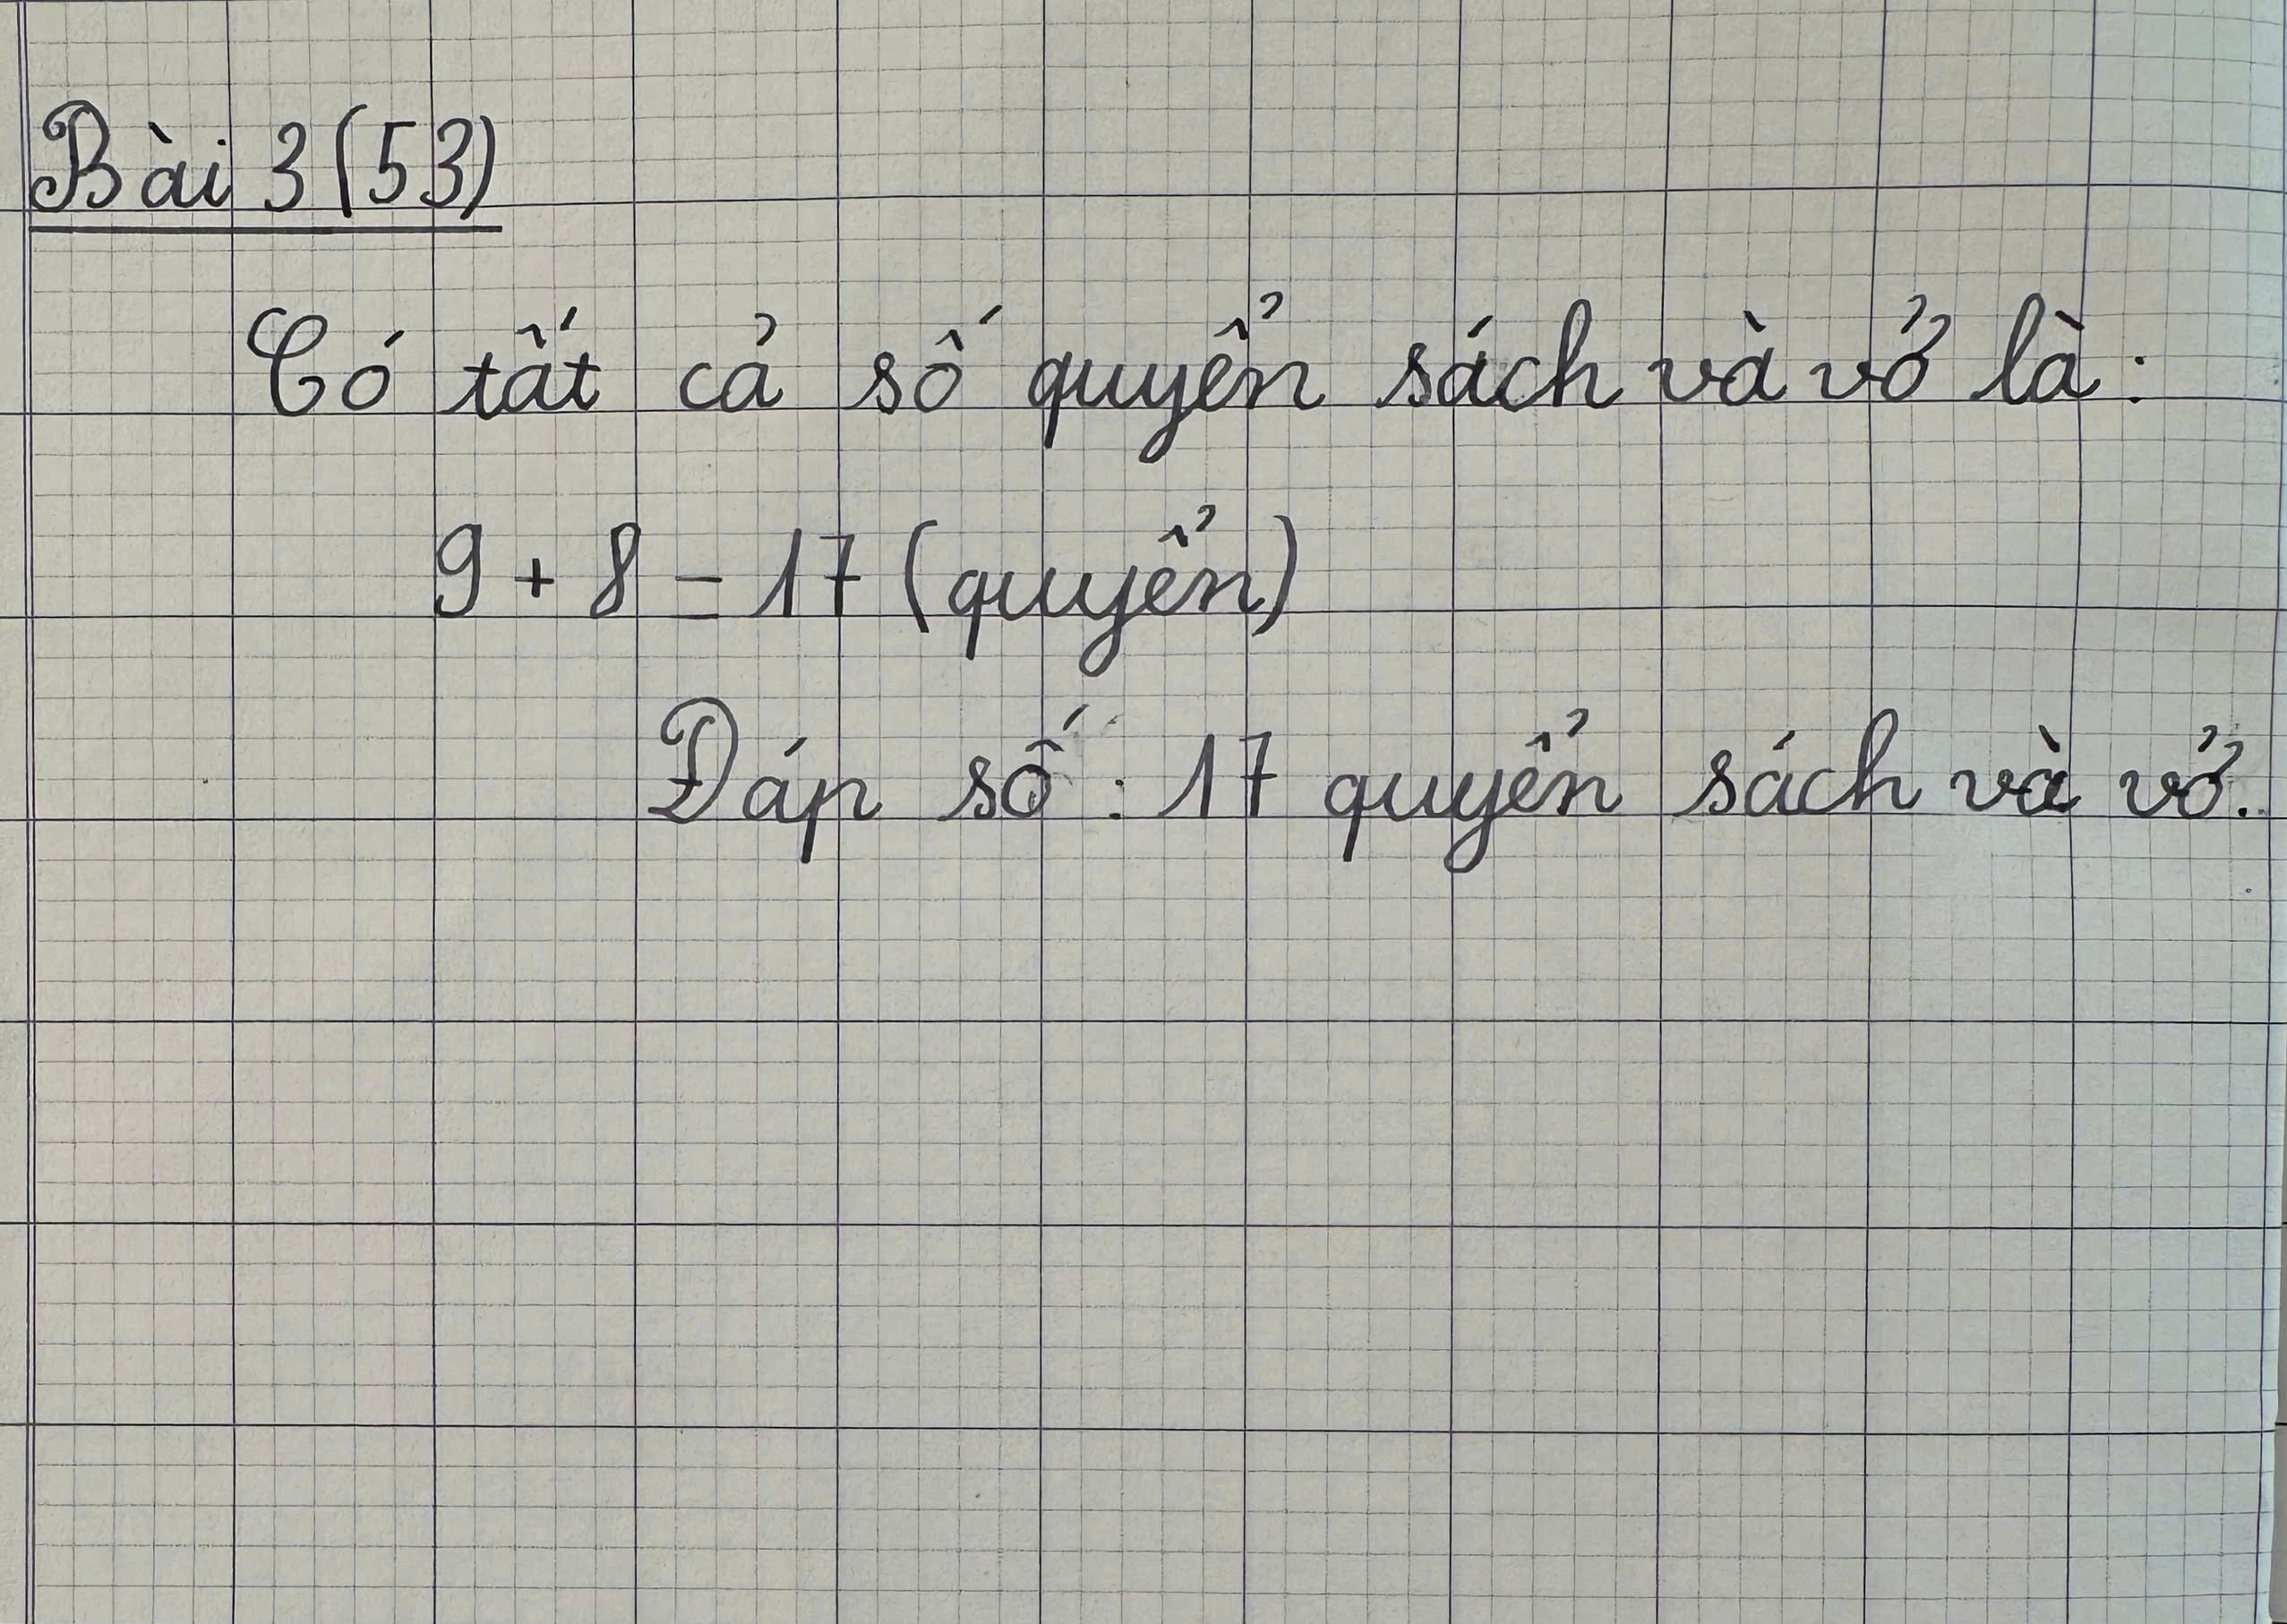 Bài 3 (53)
Có tất cả số quyển sách và vở là:
9 + 8 = 17 (quyển)
Đáp số : 17 quyển sách và vở.